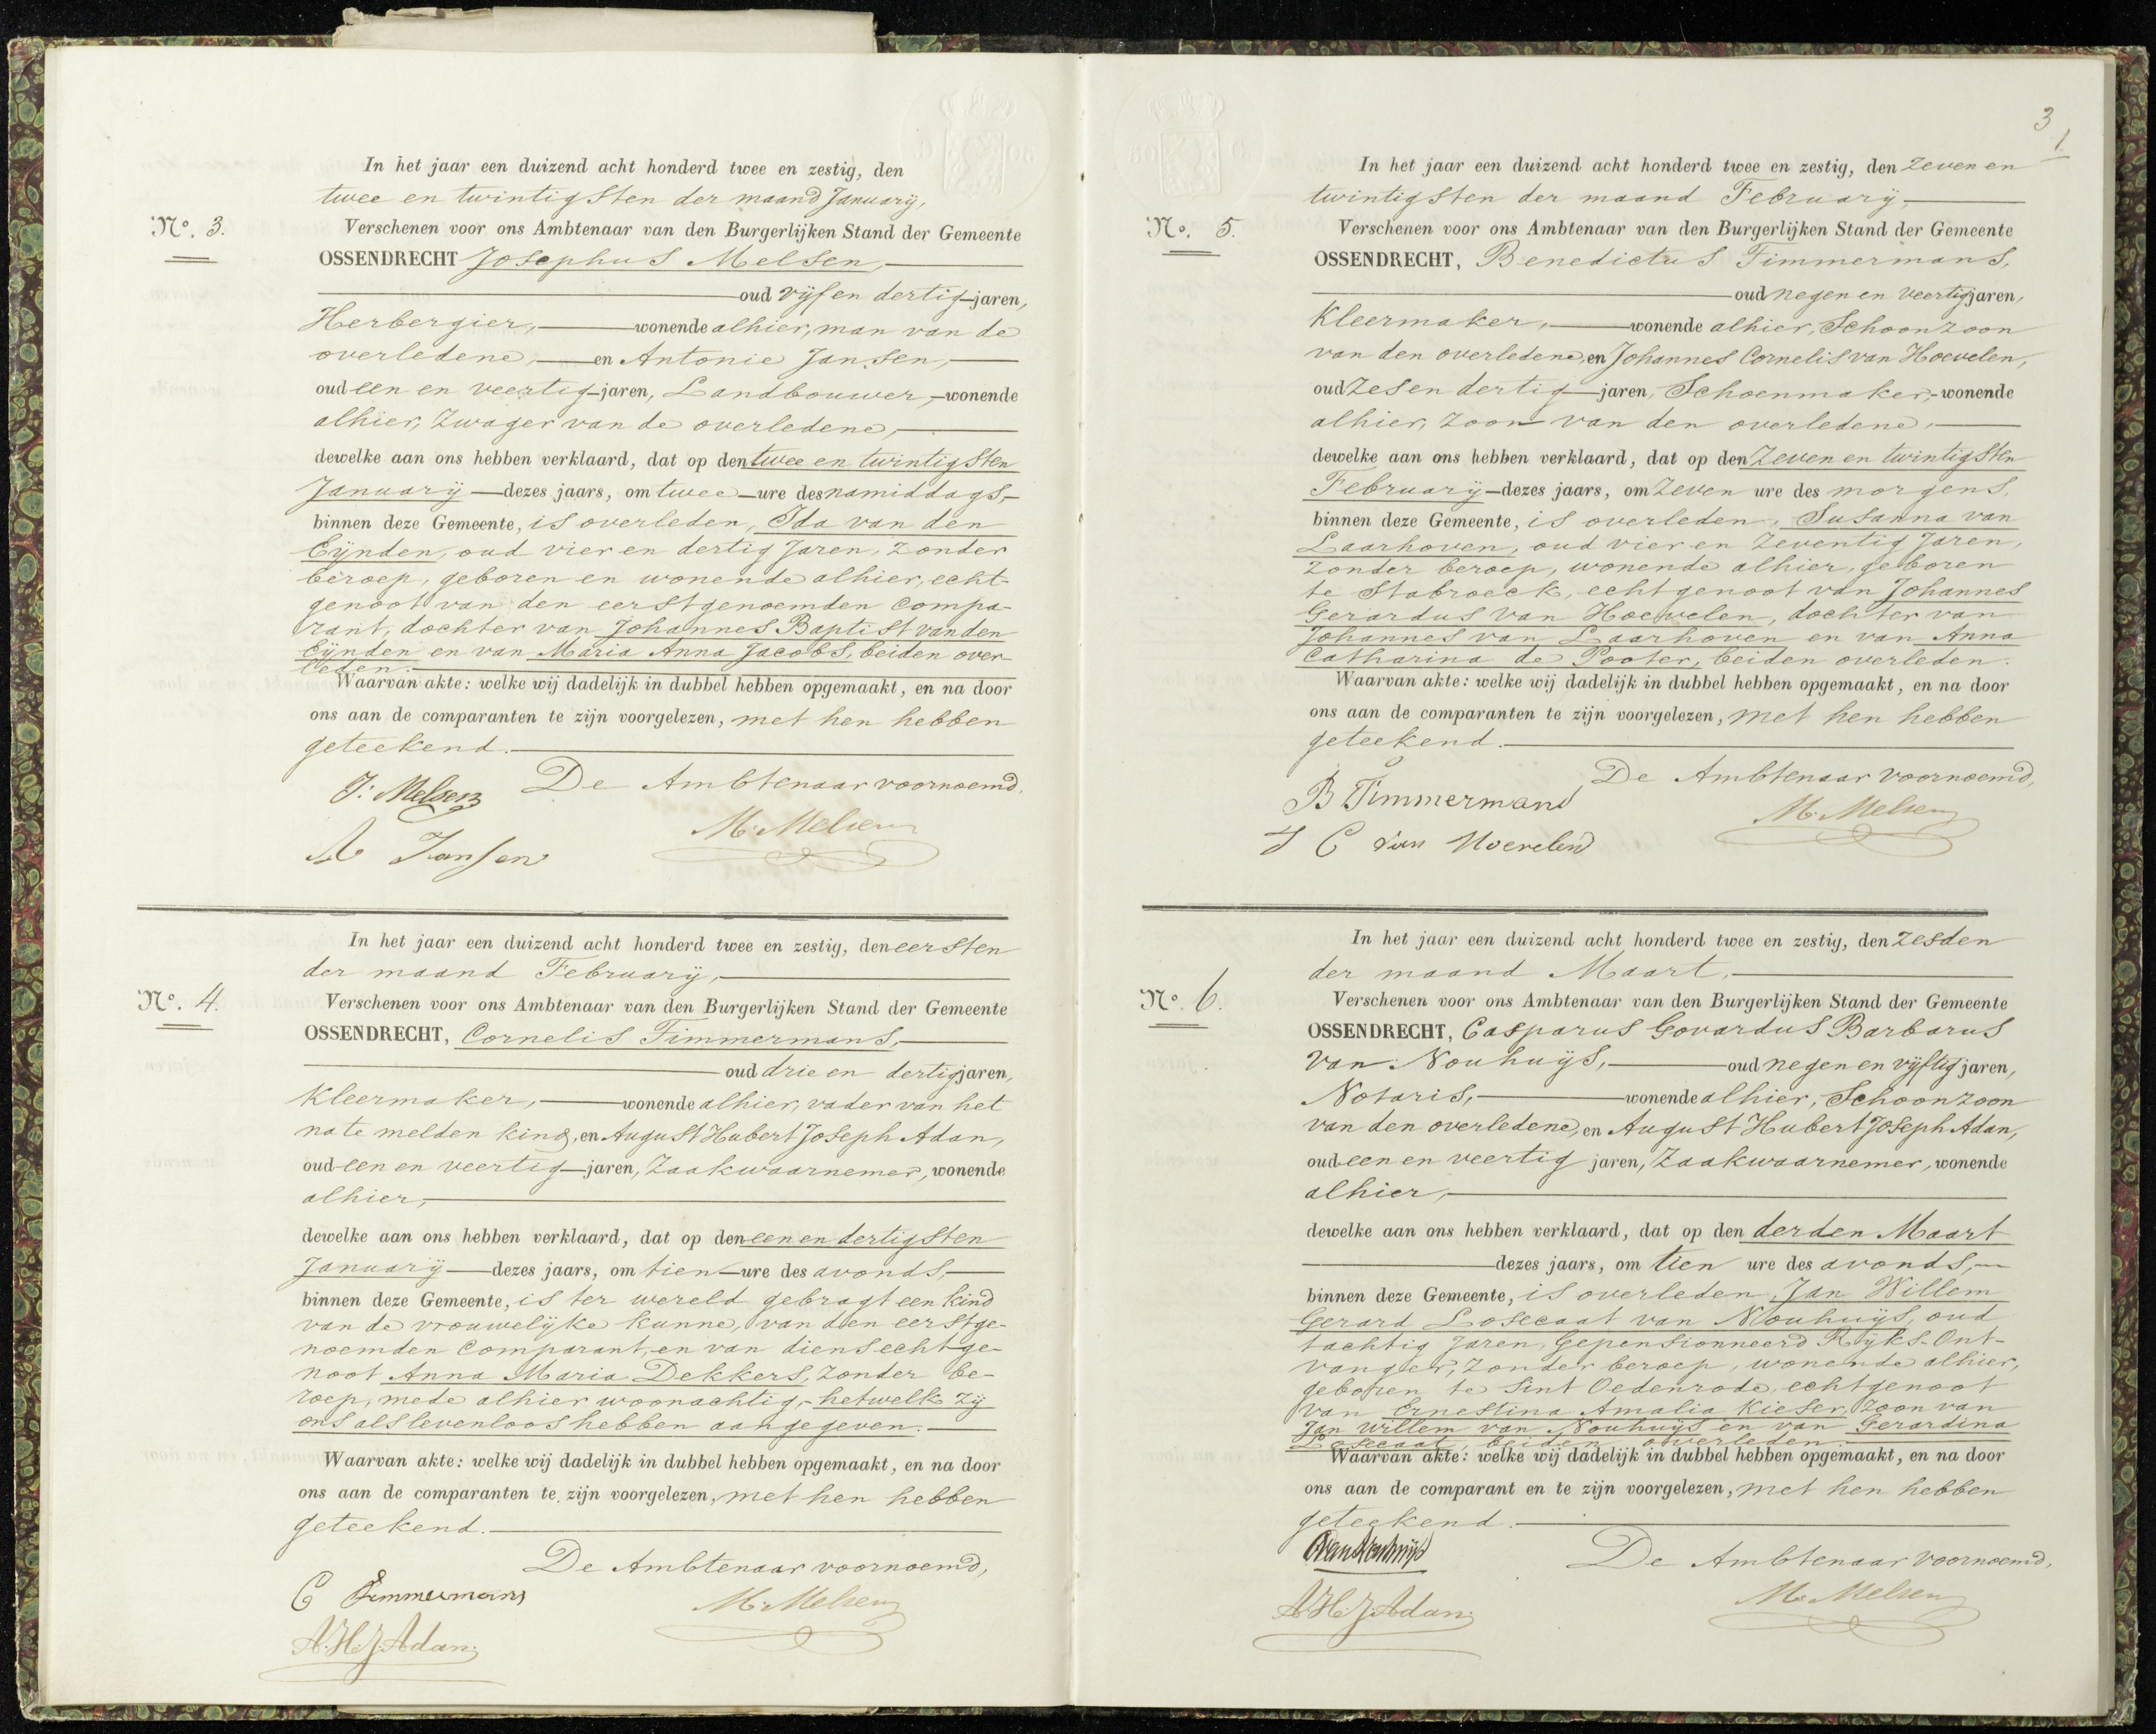 In het jaar een duizend acht honderd twee en zestig, den
twee en twintigsten der maand January,
No. 3.
Verschenen voor ons Ambtenaar van den Burgerlijken Stand der Gemeente
OSSENDRECHT Josephus Melsen,
oud vijf en dertig jaren,
Herbergier, wonende alhier, man van de
overledene, en Antonie Jansen,
oud een en veertig jaren, Landbouwer, wonende
alhier, Zwager van de overledene,
dewelke aan ons hebben verklaard, dat op den twee en twintigsten
January dezes jaars, om twee ure des namiddags,
binnen deze Gemeente, is overleden, Ida van den
Eijnden, oud vier en dertig Jaren, zonder
beroep, geboren en wonende alhier, echt-
genoot van den eerstgenoemden Compa-
rant, dochter van Johannes Baptist van den
Eijnden en van Maria Anna Jacobs, beiden over-
leden.
Waarvan akte: welke wij dadelijk in dubbel hebben opgemaakt, en na door
ons aan de comparanten te zijn voorgelezen, met hen hebben
geteekend.
De Ambtenaar voornoemd,
J: Melsen
M. Melsen
A Jansen
In het jaar een duizend acht honderd twee en zestig, den eersten
der maand February,
No. 4.
Verschenen voor ons Ambtenaar van den Burgerlijken Stand der Gemeente
OSSENDRECHT, Cornelis Timmermans,
oud drie en dertig jaren,
Kleermaker, wonende alhier, vader van het
na te melden kind, en August Hubert Joseph Adan,
oud een en veertig jaren, Zaakwaarnemer, wonende
alhier,
dewelke aan ons hebben verklaard, dat op den een en dertigsten
January dezes jaars, om tien ure des avonds,
binnen deze Gemeente, is ter wereld gebragt een kind
van de vrouwelijke kunne, van den eerstge-
noemden Comparant, en van diens echtge-
noot Anna Maria Dekkers, zonder be-
roep, mede alhier woonachtig, hetwelk zij
ons als levenloos hebben aangegeven.
Waarvan akte: welke wij dadelijk in dubbel hebben opgemaakt, en na door
ons aan de comparanten te zijn voorgelezen, met hen hebben
geteekend.
De Ambtenaar voornoemd,
C Timmermans
M. Melsen
A.H.J. Adan.
3
1
In het jaar een duizend acht honderd twee en zestig, den zeven en
twintigsten der maand February,
No. 5.
Verschenen voor ons Ambtenaar van den Burgerlijken Stand der Gemeente
OSSENDRECHT, Benedictus Timmermans,
oud negen en veertig jaren,
Kleermaker, wonende alhier, Schoonzoon
van den overledene, en Johannes Cornelis van Hoevelen,
oud zes en dertig jaren, Schoenmaker, wonende
alhier, zoon van den overledene,
dewelke aan ons hebben verklaard, dat op den Zeven en twintigsten
February dezes jaars, om zeven ure des morgens,
binnen deze Gemeente, is overleden, Susanna van
Laarhoven, oud vier en zeventig Jaren,
zonder beroep, wonende alhier, geboren
te Stabroeck, echtgenoot van Johannes
Gerardus van Hoevelen, dochter van
Johannes van Laarhoven en van Anna
Catharina de Pooter, beiden overleden.
Waarvan akte: welke wij dadelijk in dubbel hebben opgemaakt, en na door
ons aan de comparanten te zijn voorgelezen, met hen hebben
geteekend.
De Ambtenaar voornoemd,
B Timmermans
M. Melsen
J C van Hoevelen
In het jaar een duizend acht honderd twee en zestig, den zesden
der maand Maart,
No. 6.
Verschenen voor ons Ambtenaar van den Burgerlijken Stand der Gemeente
OSSENDRECHT, Casparus Govardus Barbarus
van Nouhuijs, oud negen en vijftig jaren,
Notaris, wonende alhier, Schoonzoon
van den overledene, en August Hubert Joseph Adan,
oud een en veertig jaren, Zaakwaarnemer, wonende
alhier,
dewelke aan ons hebben verklaard, dat op den derden Maart
dezes jaars, om tien ure des avonds,
binnen deze Gemeente, is overleden, Jan Willem
Gerard Losecaat van Nouhuijs, oud
tachtig Jaren, Gepensionneerd Rijks-Ont-
vanger, zonder beroep, wonende alhier,
geboren te Sint Oedenrode, echtgenoot
van Ernestina Amalia Kieser, zoon van
Jan Willem van Nouhuijs en van Gerardina
Losecaat, beiden overleden.
Waarvan akte: welke wij dadelijk in dubbel hebben opgemaakt, en na door
ons aan de comparant en te zijn voorgelezen, met hen hebben
geteekend.
De Ambtenaar voornoemd,
M. Melsen
A.H.J. Adan.